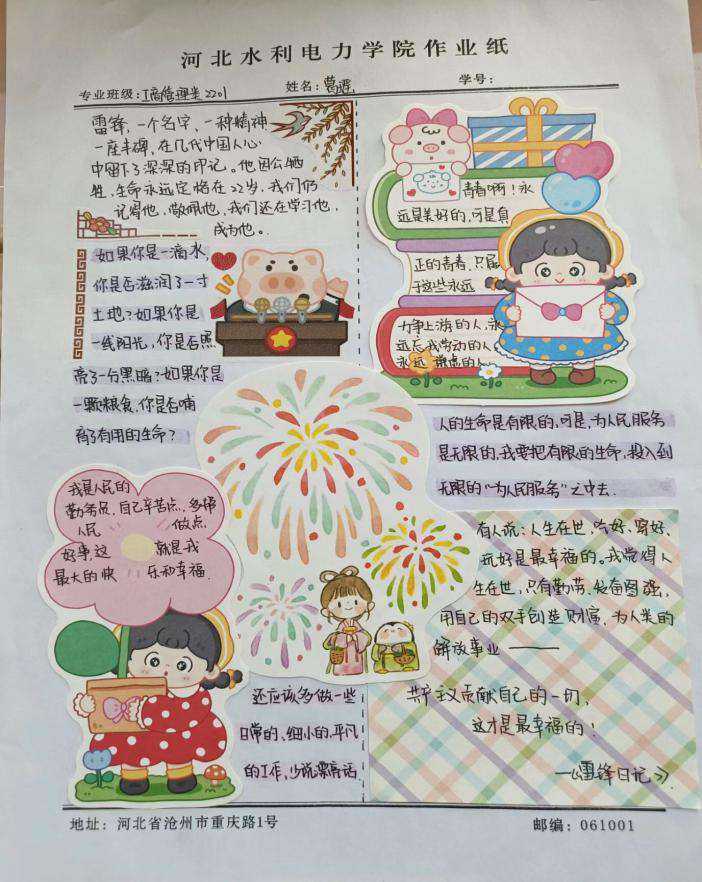 河北水利电力学院作业纸
专业班级:工商管理类2201 姓名:葛瑶 学号:
雷锋,一个名字、一种精神
一座丰碑,在几代中国人心
中留下了深深的印记。他因公牺
牲,生命永远定格在22岁,我们仍
记得他,敬佩他,我们还在学习他,
成为他。
如果你是一滴水,
你是否滋润了一寸
土地?如果你是
一线阳光,你是否照
亮了一分黑暗?如果你是
一颗粮食,你是否哺
育了有用的生命?
青春啊!永
远是美好的,可是真
正的青春,只属
于这些永远
力争上游的人,永
远忘我劳动的人
永远谦虚的人
人的生命是有限的,可是,为人民服务
是无限的,我要把有限的生命,投入到
无限的“为人民服务”之中去.
我是人民的
勤务员,自己辛苦点,多帮
人民 做点
好事,这 就是我
最大的快 乐和幸福.
有人说:人生在世,吃好、穿好、
玩好是最幸福的。我觉得人
生在世,只有勤劳、发奋图强,
用自己的双手创造财富,为人类的
解放事业——
共产主义贡献自己的一切,
这才是最幸福的!
—《雷锋日记》
还应该多做一些
日常的、细小的、平凡
的工作,少说漂亮话
地址:河北省沧州市重庆路1号 邮编:061001